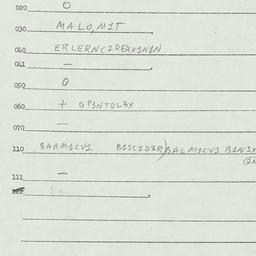 020 O
030 MALO,MIT
040 ERLERN(2DE4X1N1N
041 —
050 O
060 + OPINTOL3X
070 —
110 BARM1CV1 B1SC1D3R)BALM1CV1 B1N3X
(2N
111 —